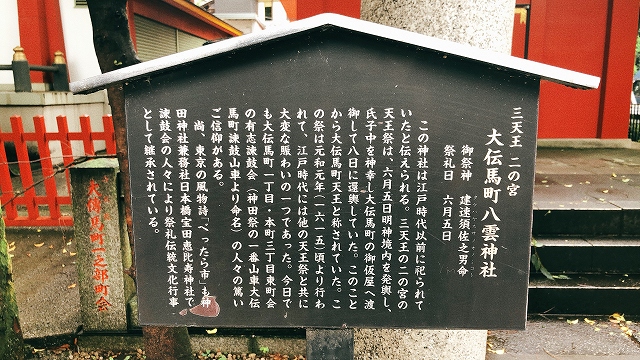 三天王 二の宮
大伝馬町八雲神社
御祭神 建速須佐之男命
祭礼日 六月五日
この神社は江戸時代以前に祀られて
いたと伝えられる。三天王の二の宮の
天王祭は、六月五日明神境内を発輿し、
氏子中を神幸し大伝馬町の御仮屋へ渡
御して八日に還輿していた。このこと
から大伝馬町天王と称されていた。こ
の祭は元和元年(一六一五)頃より行わ
れて、江戸時代には他の天王祭と共に
大変な賑わいの一つであった。今日で
も大伝馬町一丁目・本町三丁目東町会
の有志諫鼓会(神田祭の一番山車大伝
馬町諫鼓山車より命名)の人々の篤い
ご信仰がある。
尚、東京の風物詩「べったら市」も神
田神社兼務社日本橋宝田恵比寿神社で
諫鼓会の人々により祭礼伝統文化行事
として継承されている。
大伝馬町一之部町会